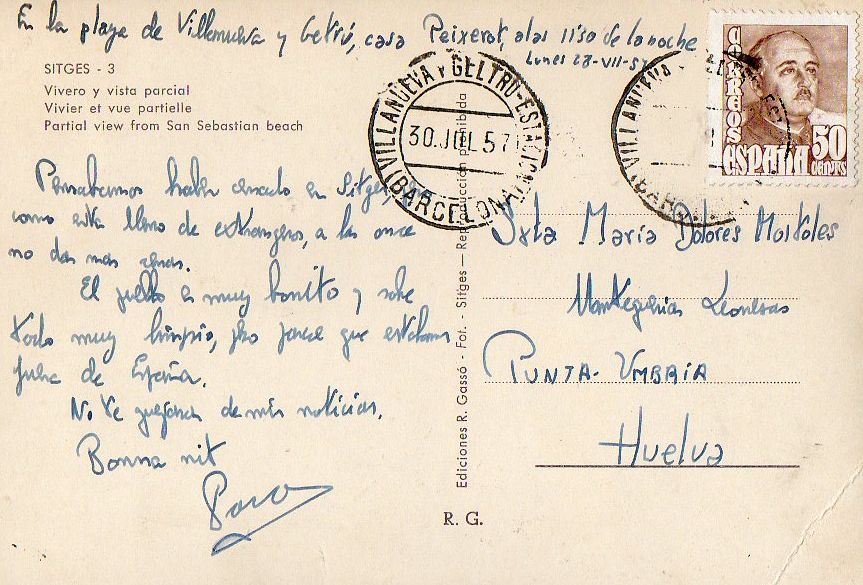 En la playa de Villanueva y Geltrú, casa Peixerot, a las 11'30 de la noche
Lunes 28-VII-57
SITGES - 3
Vivero y vista parcial
Vivier et vue partielle
Partial view from San Sebastian beach
VILLANUEVA Y GELTRU-ESTACION
30.JUL.57
(BARCELONA)
CORREOS
ESPAÑA 50
CENTS
Pensabamos haber cenado en Sitges, pero
como esta lleno de extrangeros, a las once
no dan mas cenas.
El pueblo es muy bonito y sobre
todo muy limpio, pero parece que estabamos
fuera de España.
No te quejaras de mis noticias.
Bonna nit
Paco
Ediciones R. Gassó - Fot. - Sitges — Reproducción prohibida
R. G.
Srta María Dolores Mostoles
Mantequerias Leonesas
PUNTA-UMBRIA
Huelva